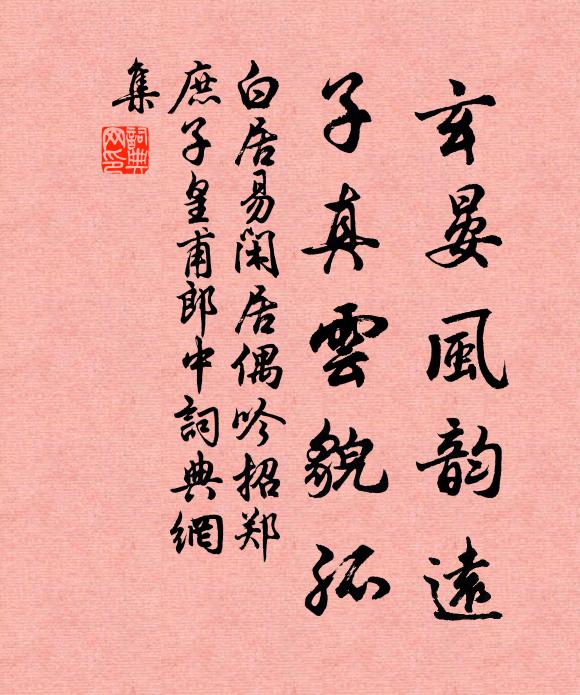 玄晏風韵遠
子真雲貌孤
白居易閑居偶吟招郑
庶子皇甫郎中詞典網
集
詞典
网印